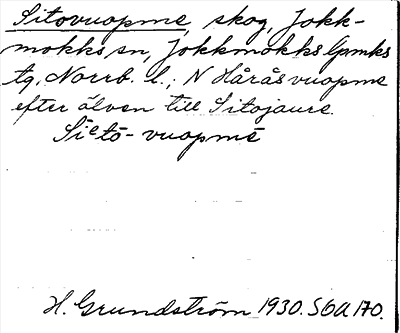 Sitovuopme, skog, Jokk-
mokks sn, Jokkmokks lpmks
tg, Norrb. l.; N Håråsvuopme
efter älven till Sitojaure.
Sietō-vuopmē
H. Grundström 1930. SOA 170.